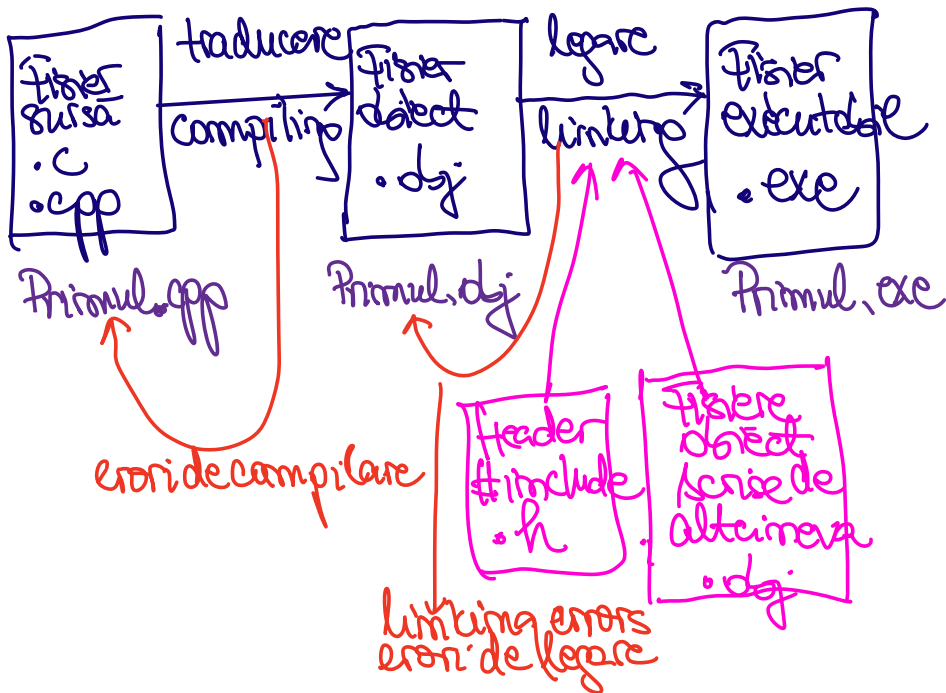 Fisier
sursa
.c
.cpp
traducere
compiling
Fisier
obiect
.obj
legare
linking
Fisier
executabile
.exe
Primul.cpp
Primul.obj
Primul.exe
erori de compilare
Header
#include
.h
Fisiere
obiect
scrise de
altcineva
.obj
linking errors
erori de legare